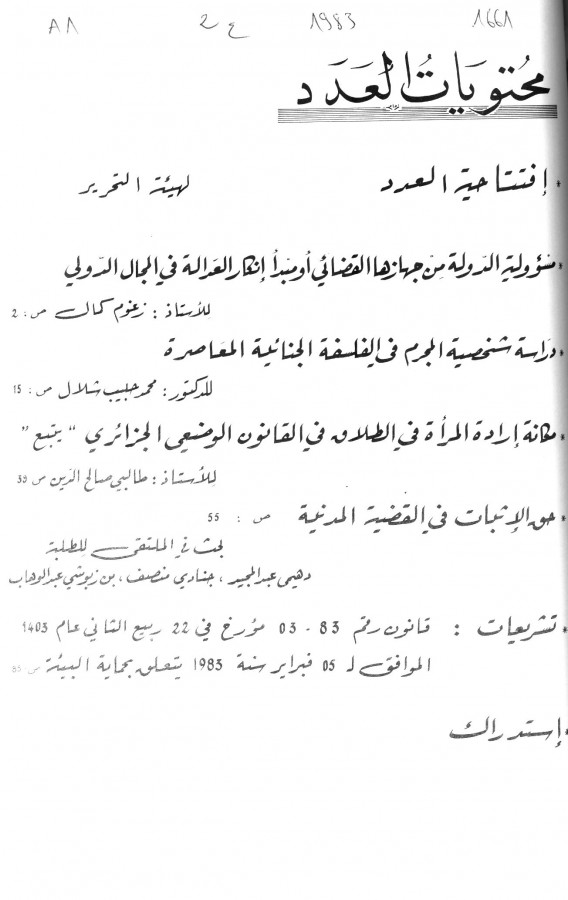 1661 1983 ع 2 A1
محتويات العدد
• إفتتاحية العدد لهيئة التحرير
• مسؤولية الدولة من جهازها القضائي أو مبدأ إنكار العدالة في المجال الدولي
للأستاذ : زعموم كمال ص : 2
• دراسة شخصية المجرم في الفلسفة الجنائية المعاصرة
للدكتور : محمد حبيب شلال ص : 15
• مكانة إرادة المرأة في الطلاق في القانون الوضعي الجزائري " يتبع "
للأستاذ : طالبي صالح الدين ص 39
• حق الإثبات في القضية المدنية ص : 55
بحث في الملتقى للطلبة
دهيمي عبد المجيد ، جنادي منصف ، بن زيوشي عبد الوهاب
• تشريعات : قانون رقم 83 - 03 مؤرخ في 22 ربيع الثاني عام 1403
الموافق لـ 05 فبراير سنة 1983 يتعلق بحماية البيئة ص
• إستدراك